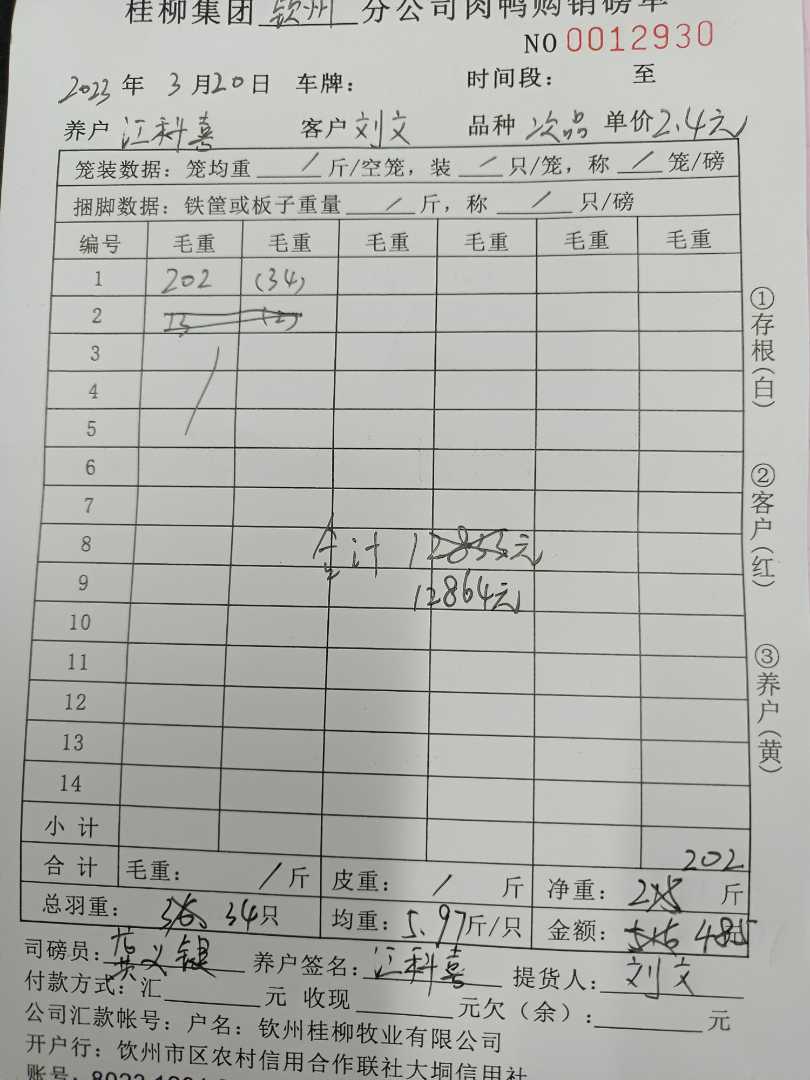 桂柳集团 钦州 分公司肉鸭购销磅单
NO 0012930
2023 年 3 月 20 日 车牌： 时间段： 至
养户 江科喜 客户 刘文 品种 次品 单价 2.4元
笼装数据：笼均重 / 斤/空笼，装 / 只/笼，称 / 笼/磅
捆脚数据：铁筐或板子重量 / 斤，称 / 只/磅
编号 毛重 毛重 毛重 毛重 毛重 毛重
1 202 (34)
2 13 (2)
3
4
5
6
7
8 合计 12853元
9 12864元
10
11
12
13
14
小计
合计 毛重： / 斤 皮重： / 斤 净重： 215 202 斤
总羽重： 36 34只 均重： 5.97斤/只 金额： 516 485
司磅员： 义键 养户签名： 江科喜 提货人： 刘文
付款方式：汇 元 收现 元欠（余）： 元
公司汇款帐号：户名：钦州桂柳牧业有限公司
开户行：钦州市区农村信用合作联社大垌信用社
账号：
①存根(白)
②客户(红)
③养户(黄)